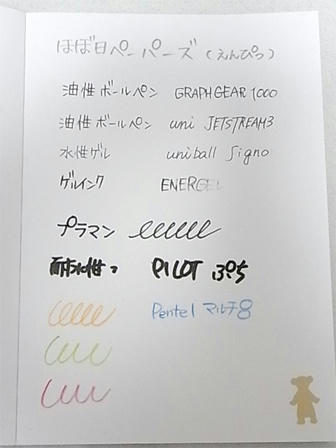 ほぼ日ペーパーズ(えんぴつ)
油性ボールペン GRAPHGEAR 1000
油性ボールペン uni JETSTREAM3
水性ゲル uniball Signo
ゲルインク ENERGEL
プラマン
耐水性? PILOT ぷち
Pentel マルチ8